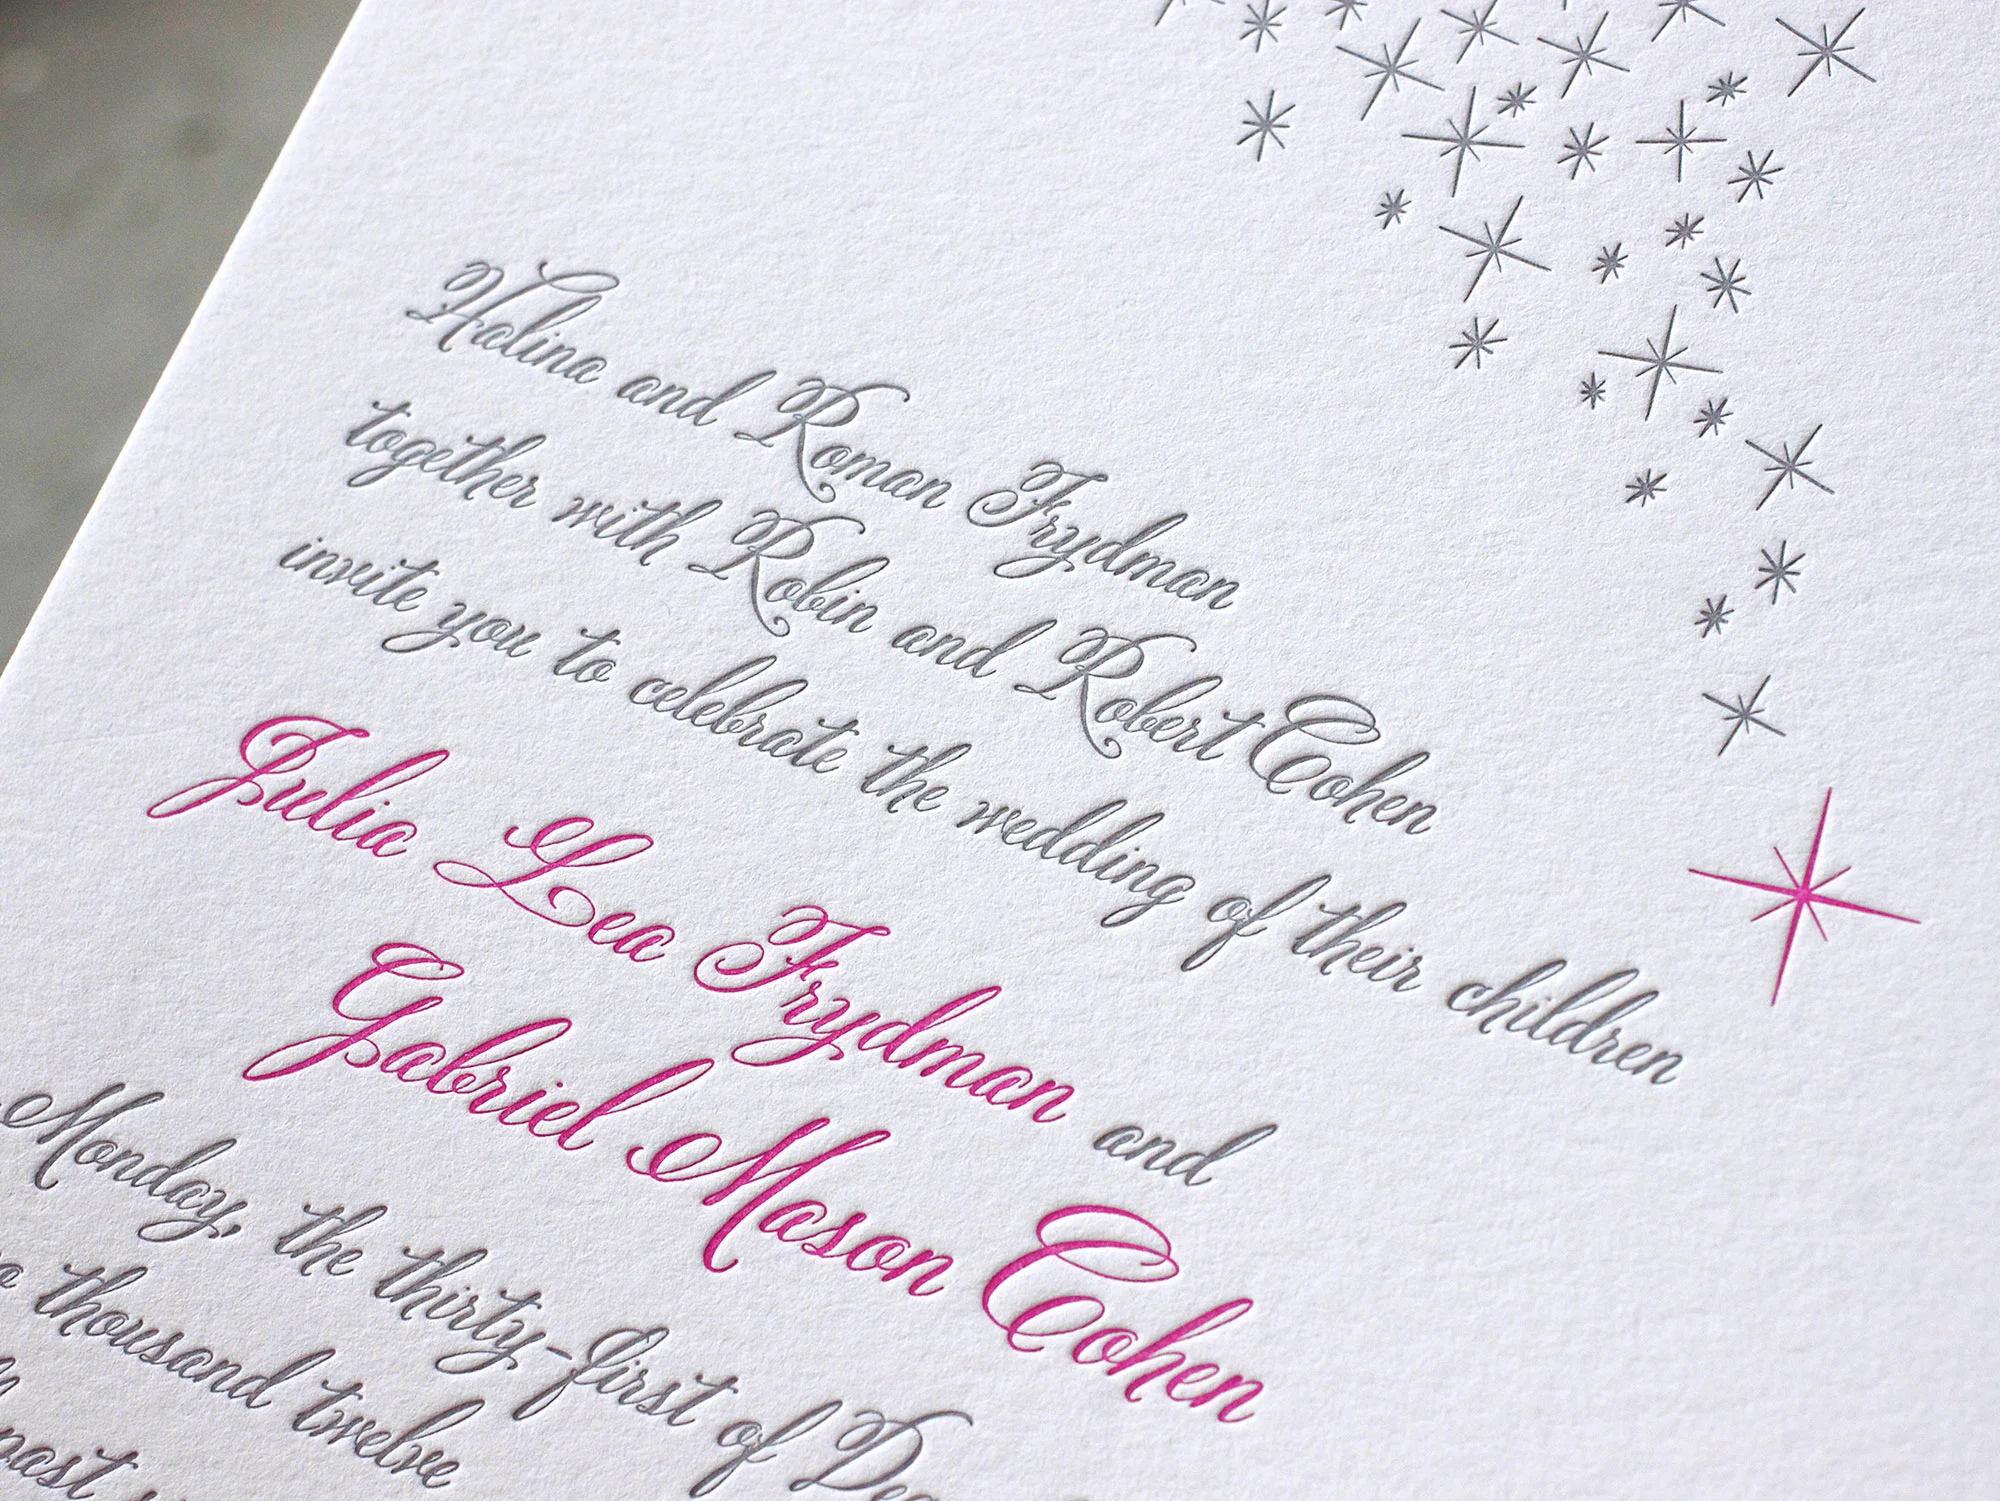 Halina and Roman Frydman
together with Robin and Robert Cohen
invite you to celebrate the wedding of their children
Julia Lea Frydman and
Gabriel Mason Cohen
Monday, the thirty-first of
thousand twelve